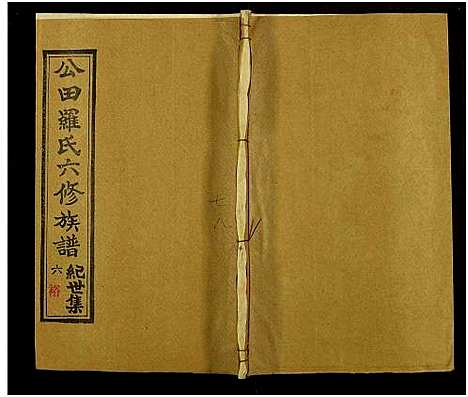 公田羅氏六修族譜
紀世集
六
裕
七
八